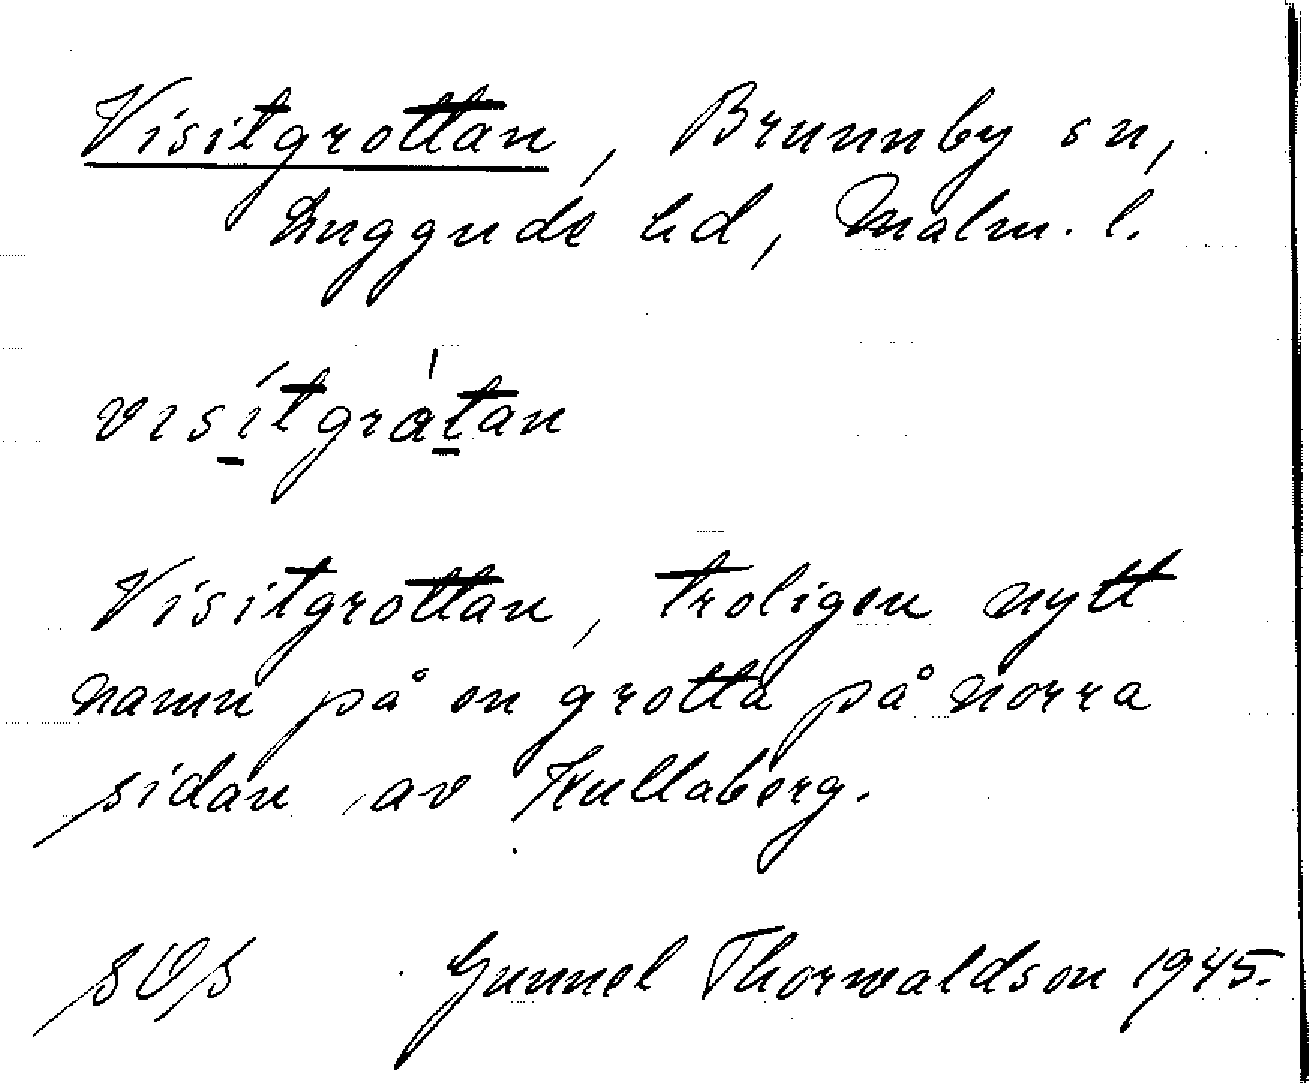 Visitgrottan, Brunnby sn,
Luggude hd, Malm. l.
visítgråtan
Visitgrottan, troligen nytt
namn på en grotta på norra
sidan av Kullaberg.
SOS Gunnel Thorwaldson 1945.